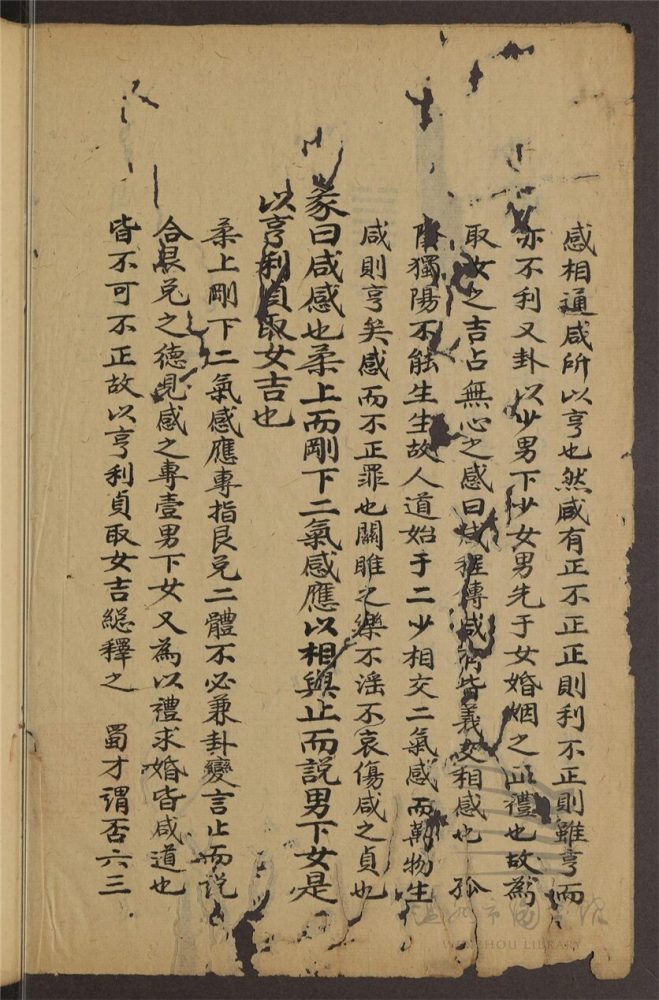 感相通咸所以亨也然咸有正不正正則利不正則雖亨而
亦不利又卦以少男下少女男先于女婚姻之正禮也故為
取女之吉占無心之感曰咸程傳咸訓皆義交相感也 孤
陰獨陽不能生生故人道始于二少相交二氣感而萬物生
咸則亨矣感而不正罪也關雎之樂不淫不哀傷咸之貞也
彖曰咸感也柔上而剛下二氣感應以相與止而説男下女是
以亨利貞取女吉也
柔上剛下二氣感應專指艮兑二體不必兼卦變言止而説
合艮兑之德見感之專壹男下女又為以禮求婚皆咸道也
皆不可不正故以亨利貞取女吉總釋之 蜀才謂否六三
溫州市圖書館
WENZHOU LIBRARY